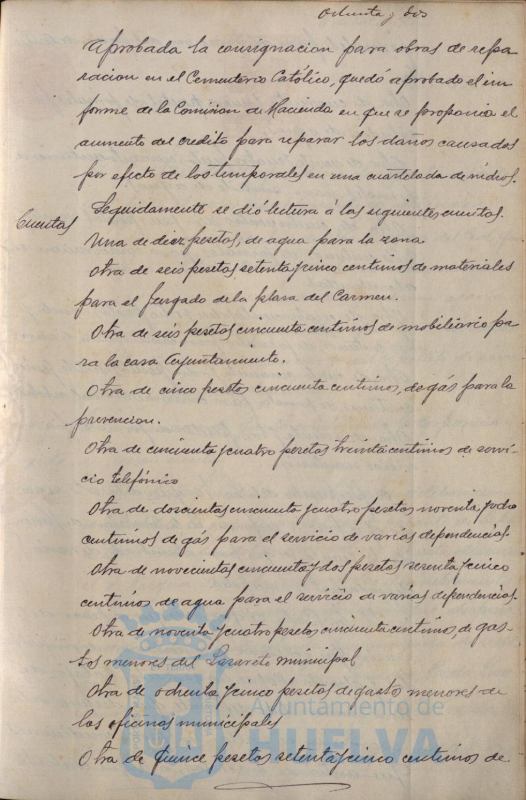 Ochenta y dos
Aprobada la consignacion para obras de repa-
racion en el Cementerio Católico, quedó aprobado el in-
forme de la Comision de Hacienda en que se proponia el
aumento del credito para reparar los daños causados
por efecto de los temporales en una cuartelada de nichos.
Cuentas
Seguidamente se dió lectura á las siguientes cuentas.
Una de diez pesetas, de agua para la zona
Otra de seis pesetas setenta y cinco centimos de materiales
para el Juzgado de la plaza del Carmen.
Otra de seis pesetas cincuenta centimos de mobiliario pa-
ra la casa Ayuntamiento.
Otra de cinco pesetas cincuenta centimos, de gás para la
prevencion.
Otra de cincuenta y cuatro pesetas treinta centimos de servi-
cio telefónico
Otra de doscientas cincuenta y cuatro pesetas noventa y ocho
centimos de gás para el servicio de varias dependencias.
Otra de novecientas cincuenta y dos pesetas sesenta y cinco
centimos de agua para el servicio de varias dependencias.
Otra de noventa y cuatro pesetas cincuenta centimos, de gas-
tos menores del Lazareto municipal
Otra de ochenta y cinco pesetas de gastos menores de
las oficinas municipales
Otra de quince pesetas setenta y cinco centimos de
Ayuntamiento de
HUELVA